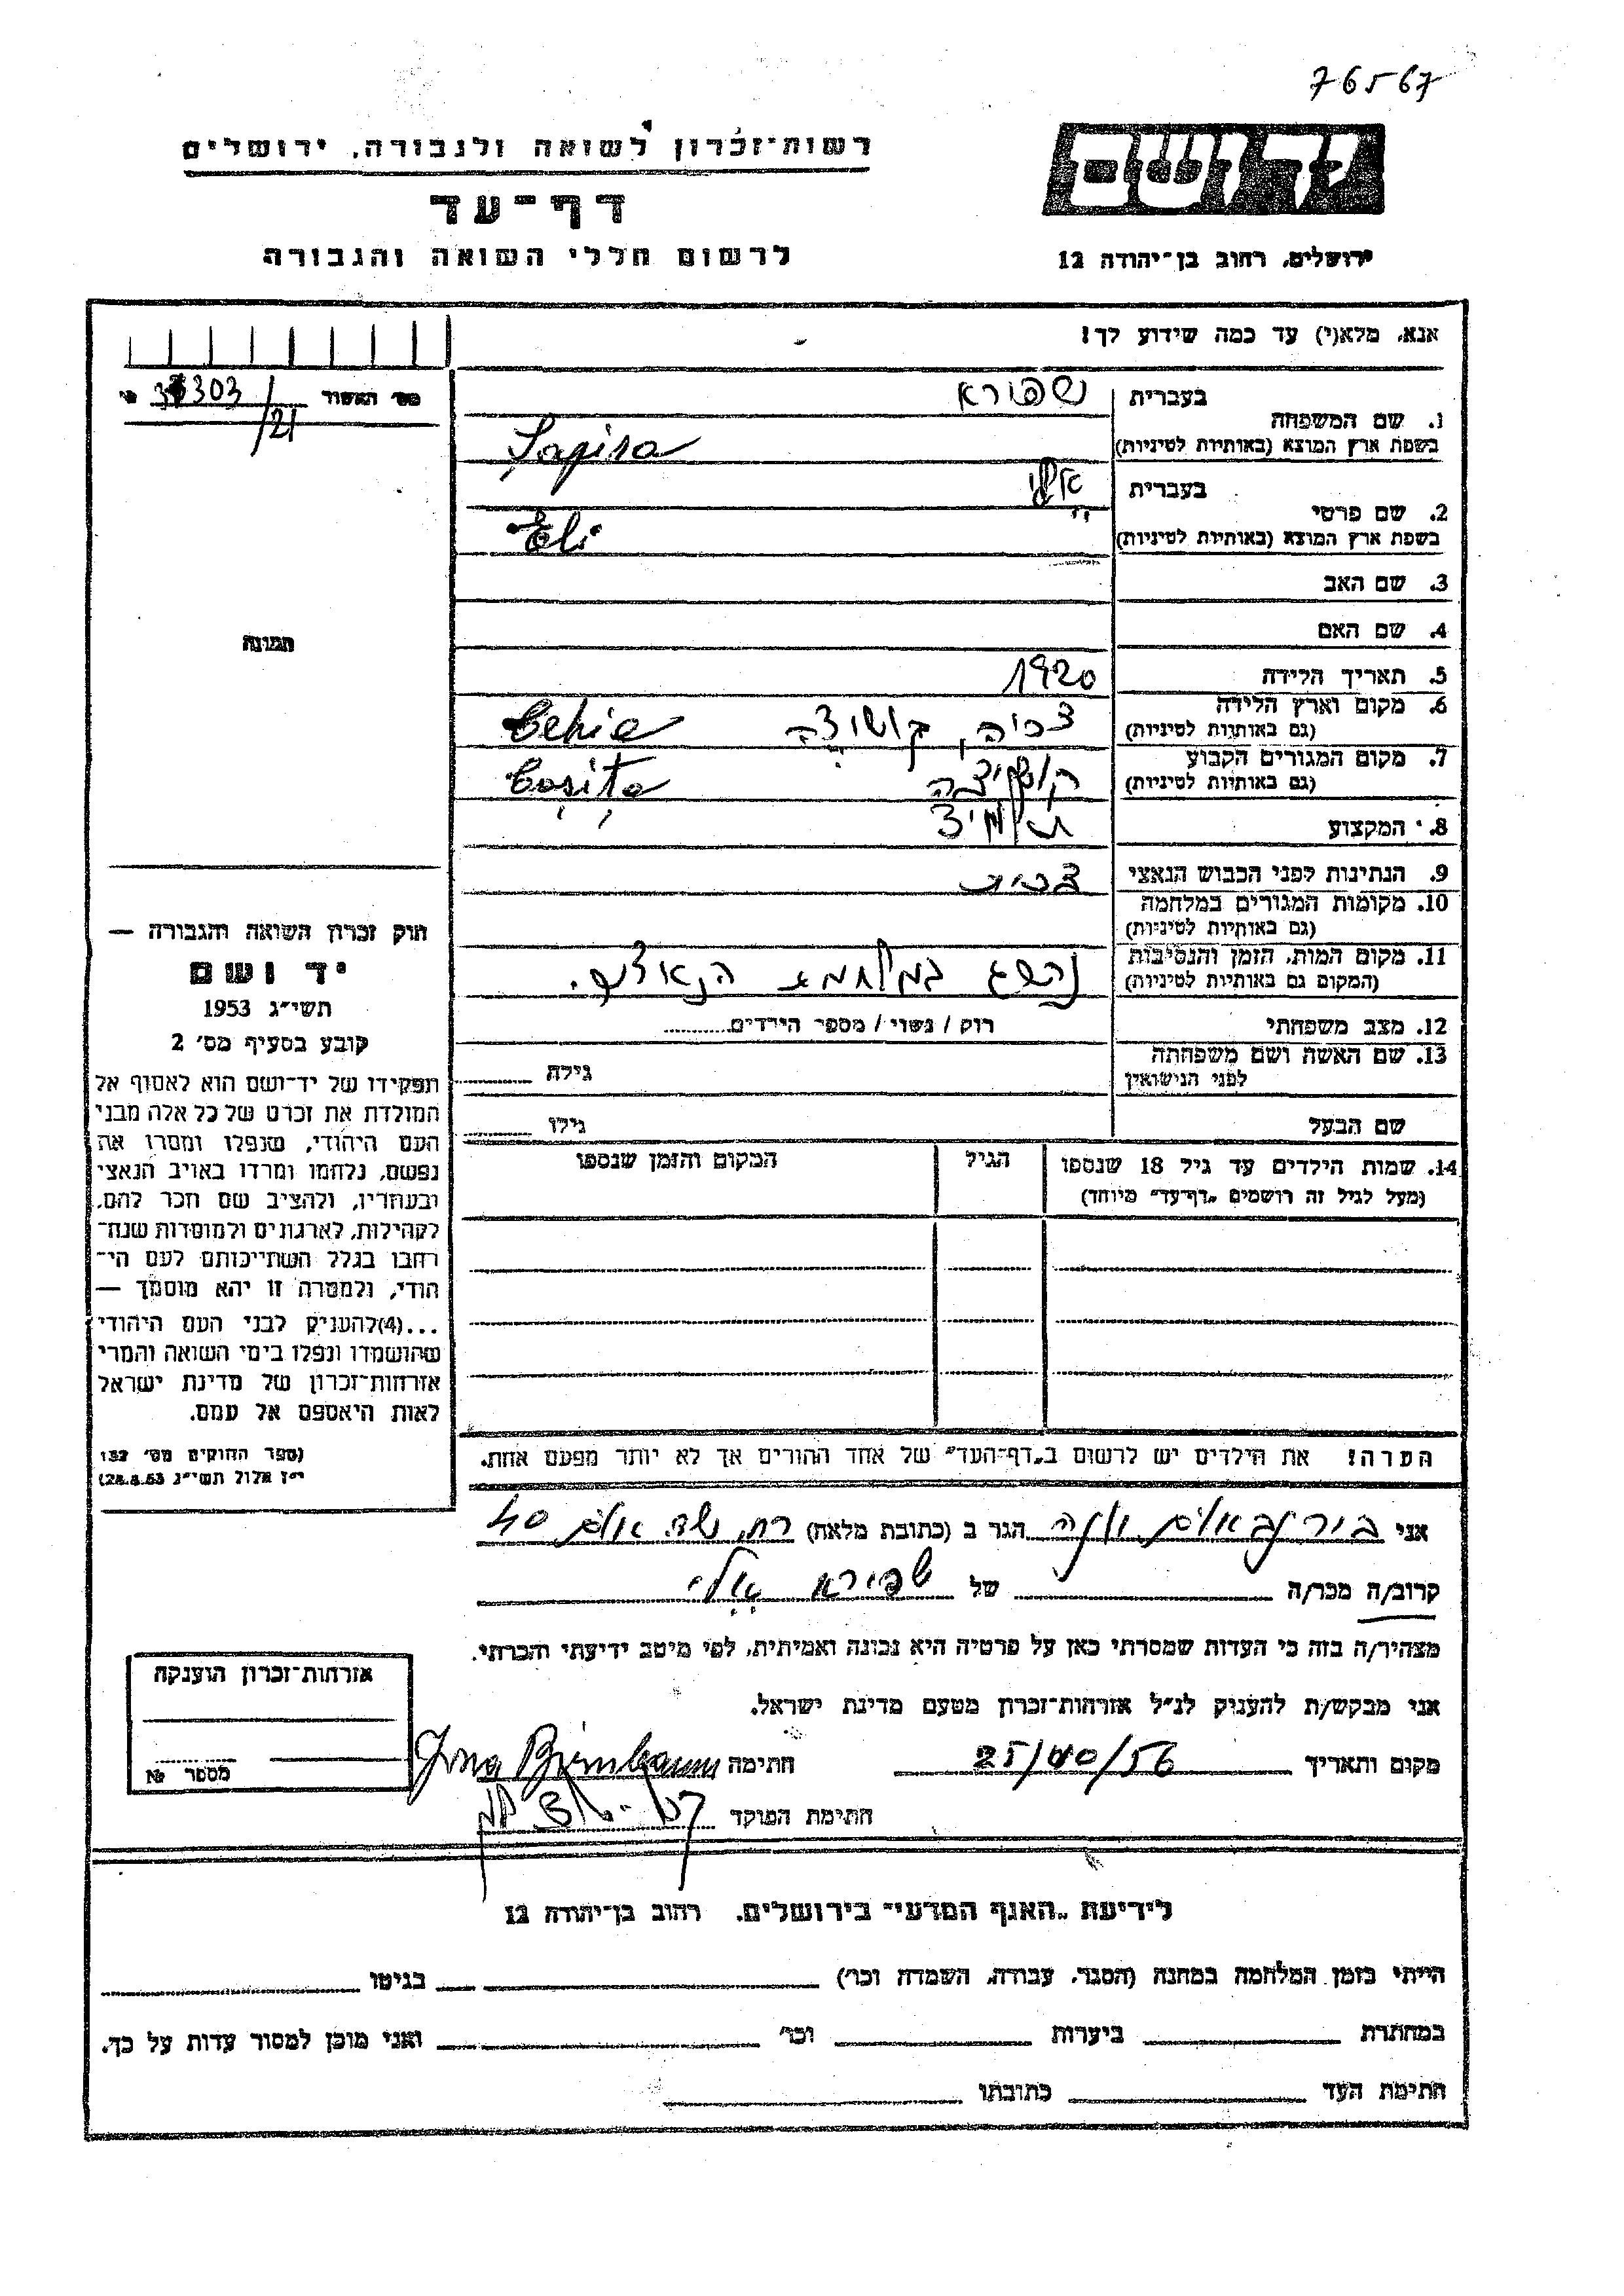 76567
רשות־זכרון לשואה ולגבורה, ירושלים
דף־עד
לרשום חללי השואה והגבורה
ירושלים, רחוב בן־יהודה 12
אנא, מלא(י) עד כמה שידוע לך!
מס' האשור 303
/21
1. שם המשפחה
בעברית שפירא
בשפת ארץ המוצא (באותיות לטיניות) Şapira
2. שם פרטי
בעברית אלי
בשפת ארץ המוצא (באותיות לטיניות) Eli
3. שם האב
4. שם האם
תמונה
5. תאריך הלידה 1920
6. מקום וארץ הלידה
(גם באותיות לטיניות) צכיה, קושיצה Cehia
7. מקום המגורים הקבוע
(גם באותיות לטיניות) קושיצה Coşiţa
8. המקצוע תלמיד
9. הנתינות לפני הכבוש הנאצי צכית
10. מקומות המגורים במלחמה
(גם באותיות לטיניות)
11. מקום המות, הזמן והנסיבות
(המקום גם באותיות לטיניות) נהרג במלחמת הנאצים.
12. מצב משפחתי רוק / נשוי / מספר הילדים
13. שם האשה ושם משפחתה
לפני הנישואין גילה
שם הבעל גילו
14. שמות הילדים עד גיל 18 שנספו הגיל המקום והזמן שנספו
(מעל לגיל זה רושמים „דף־עד" מיוחד)
חוק זכרון השואה והגבורה —
יד ושם
תשי"ג 1953
קובע בסעיף מס' 2
תפקידו של יד־ושם הוא לאסוף אל
המולדת את זכרם של כל אלה מבני
העם היהודי, שנפלו ומסרו את
נפשם, נלחמו ומרדו באויב הנאצי
ובעוזריו, ולהציב שם וזכר להם,
לקהילות, לארגונים ולמוסדות שנח־
רבו בגלל השתייכותם לעם הי־
הודי, ולמטרה זו יהא מוסמך —
...(4)להעניק לבני העם היהודי
שהושמדו ונפלו בימי השואה והמרי
אזרחות־זכרון של מדינת ישראל
לאות היאספם אל עמם.
(ספר החוקים מס' 132
י"ז אלול תשי"ג 28.8.53)
הערה! את הילדים יש לרשום ב„דף־העד" של אחד ההורים אך לא יותר מפעם אחת.
אני בירנבאום הגר ב (כתובת מלאה) 40
קרוב/ה מכר/ה של שפירא אלי
מצהיר/ה בזה כי העדות שמסרתי כאן על פרטיה היא נכונה ואמיתית, לפי מיטב ידיעתי והכרתי.
אני מבקש/ת להעניק לנ"ל אזרחות־זכרון מטעם מדינת ישראל.
מקום ותאריך 25/10/56 חתימה Birnbaum
חתימת הפוקד
אזרחות־זכרון הוענקה
מספר №
לידיעת „האגף המדעי" בירושלים, רחוב בן־יהודה 12
הייתי בזמן המלחמה במחנה (הסגר, עבודה, השמדה וכו') בגיטו
במחתרת ביערות וכו' ואני מוכן למסור עדות על כך.
חתימת העד כתובתו